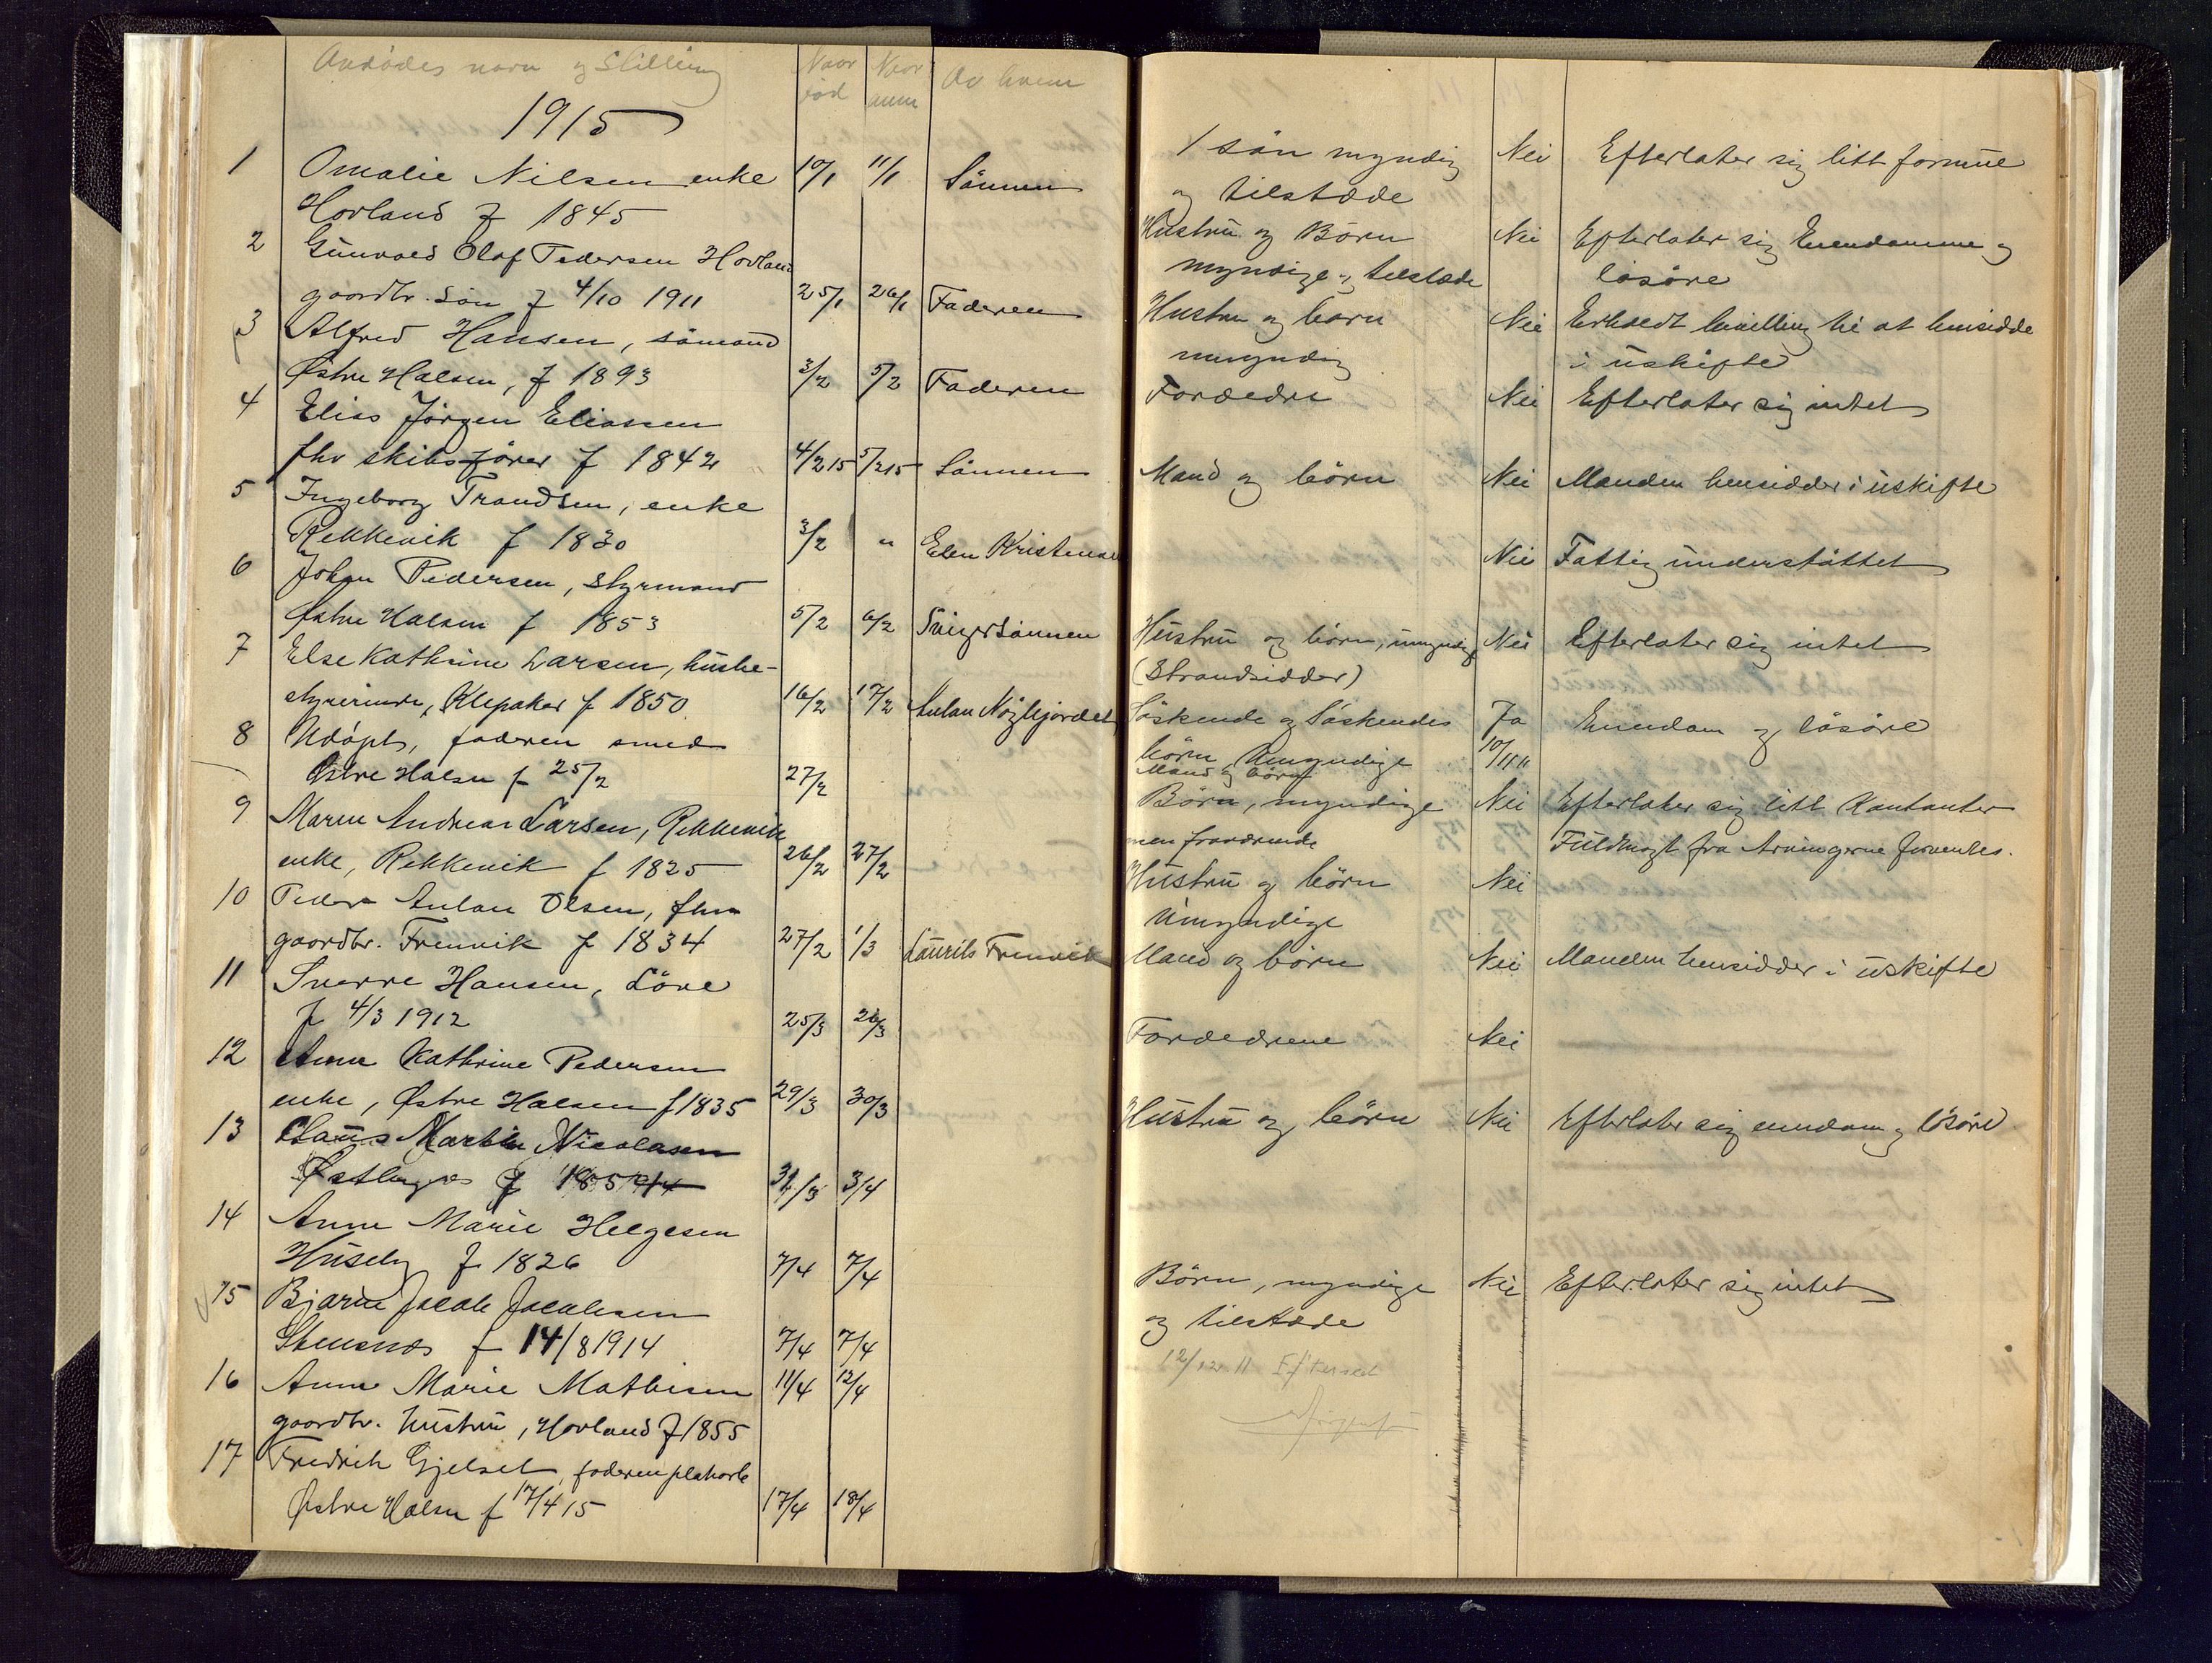 Avdødes navn og Stilling Naar død Naar anm Av hvem
1915
1 Omalie Nilsen enke 10/1 11/1 Sönnen
Hovland f 1845
2 Gunvald Olaf Pedersen Hovland
gaardbr. Sön f 4/10 1911 25/1 26/1 Faderen
3 Alfred Hansen, sömand
Østre Halsen, f 1893 3/2 5/2 Faderen
4 Elias Jörgen Eliassen
fhv skibsförer f 1842 4/2 15 5/2 15 Sönnen
5 Ingeborg Trandsen, enke
Rekkevik f 1830 3/2 " Elen Kristensen
6 Johan Pedersen, Styrmand
Østre Halsen f 1853 5/2 6/2 Svigersönnen
7 Else Kathrine Larsen, hushe-
styrerinde, Klepaker f 1850 16/2 17/2 Anton
8 Udöpt, faderen smed
Østre Halsen f 25/2 27/2
9 Maren Andrea Larsen, Rekkevik
enke, Rekkevik f 1825 26/2 27/2
10 Peder Anton Olsen, fhv
gaardbr. Fremvik f 1834 27/2 1/3 Laurits Fremvik
11 Sverre Hansen, Löve
f 4/3 1912 25/3 26/3
12 Anne Kathrine Pedersen
enke, Østre Halsen f 1835 29/3 30/3
13 Claus Martin Nicolasen
f 3/4
14 Anne Marie Helgesen
Huseby f 1826 7/4 7/4
15 Bjarne Jacob Jacobsen
Stensnes f 14/8 1914 7/4 7/4
16 Anne Marie Mathisen 11/4 12/4
gaardbr. hustru, Hovland f 1855
17 Fredrik Gjelset, faderen
Østre Halsen f 17/4 15 17/4 18/4
1 sön myndig Nei Efterlater sig litt formue
og tilstæde
Hustru og Börn Nei Efterlater sig Eiendomme og
myndige og tilstæde lösöre
Hustru og barn Nei Erholdt bevilling til at hensidde
umyndig i uskifte
Forældre Nei Efterlater sig intet
Mand og börn Nei Manden hensidder i uskifte
Nei Fattigunderstöttet
Hustru og börn, umyndige Nei Efterlater sig intet
(Strandsidder)
Söskende og Söskendes Ja Eiendom og lösöre
börn, Umyndige 10/11 11
Mand og börn
Börn, myndige Nei Efterlater sig litt Kontanter
men fraværende Fuldmagt fra Arvingerne forventes.
Hustru og börn Nei
Umyndige
Mand og börn Nei Manden hensidder i uskifte
Forældrene Nei
Hustru og börn Nei Efterlater sig eiendom og lösöre
Börn, myndige Nei Efterlater sig intet
og tilstæde
12/12 11 Efterset